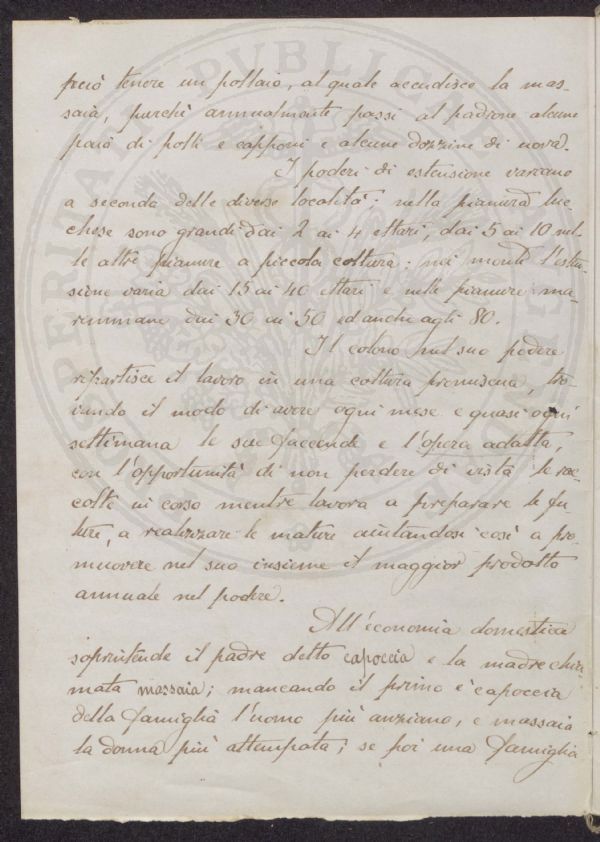 però tenere un pollaio, al quale accudisce la mas-
saia, purchè annualmente passi al padrone alcune
paia di polli e capponi e alcune dozzine di uova.
I poderi di estensione variano
a seconda delle diverse località: nella pianura luc-
chese sono grandi dai 2 ai 4 ettari, dai 5 ai 10 nel-
le altre pianure a piccola coltura: nei monti l'esten-
sione varia dai 15 ai 40 ettari e nelle pianure ma-
remmane dai 30 ai 50 ed anche agli 80.
Il colono nel suo podere
ripartisce il lavoro in una coltura promiscua, tro-
vando il modo di avere ogni mese e quasi ogni
settimana le sue faccende e l'opera adatta,
con l'opportunità di non perdere di vista le rac-
colte in corso mentre lavora a preparare le fu-
ture, a realizzare le mature aiutandosi così a pro-
muovere nel suo insieme il maggior prodotto
annuale nel podere.
All'economia domestica
soprintende il padre detto capoccia e la madre chia-
mata massaia; mancando il primo è capoccia
della famiglia l'uomo più anziano, e massaia
la donna più attempata; se poi una famiglia